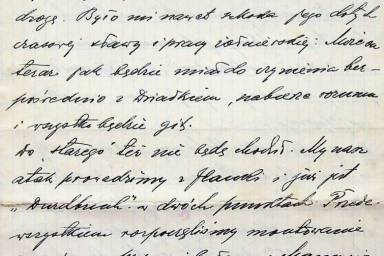 drogę. Było mi nawet szkoda jego dotych
czasowej sławy i pracy żołnierskiej. Może on
teraz jak będzie miał do czynienia bez-
pośrednio z Dziadkiem, nabierze rozumu
i wszystko będzie git.
Do "starego" też nie będę chodził. My nasz
atak prowadzimy z flanki i już jest
w dwóch punktach. Przede-
wszystkiem rozpoczęliśmy montowanie